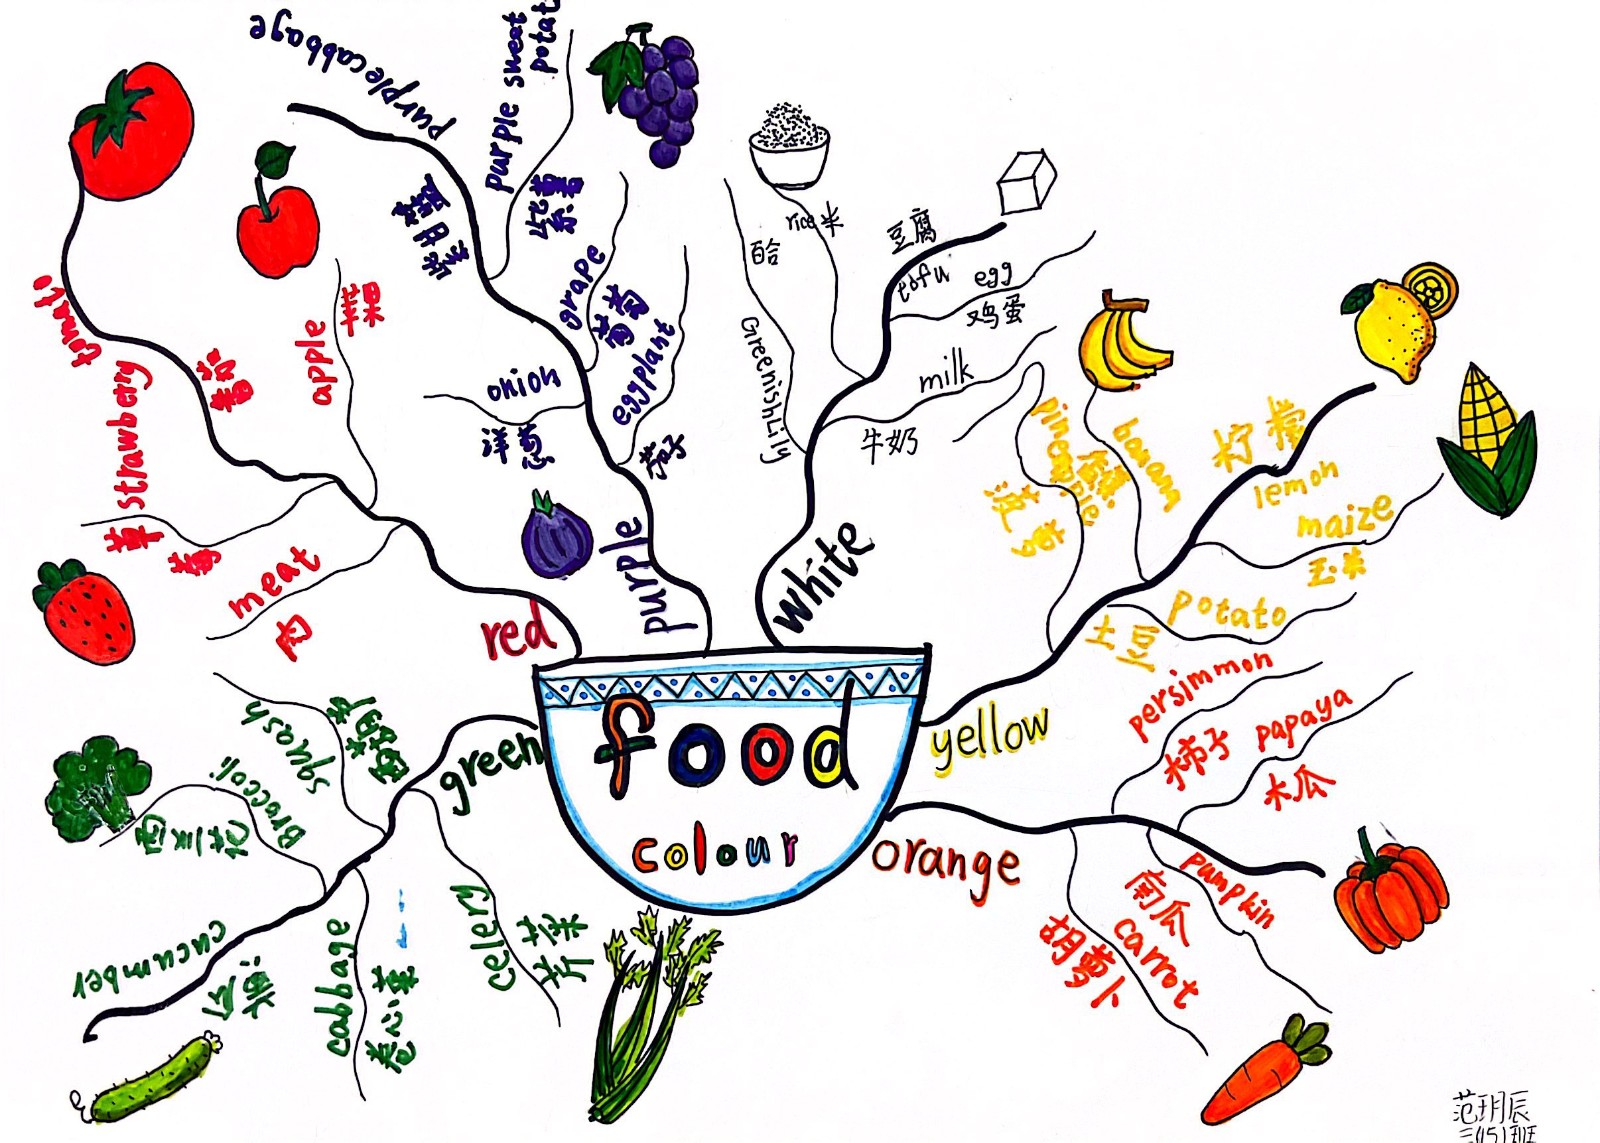 food
colour
red
tomato
番茄
apple
苹果
strawberry
草莓
meat
肉
purple
purple cabbage
紫甘蓝
purple sweat
potat
紫薯
grape
葡萄
eggplant
茄子
onion
洋葱
white
Greenish Lily
百合
rice 米
豆腐
tofu
egg
鸡蛋
milk
牛奶
yellow
柠檬
lemon
banana
香蕉
pineapple
菠萝
maize
玉米
potato
土豆
orange
persimmon
柿子
papaya
木瓜
pumpkin
南瓜
carrot
胡萝卜
green
squash
西葫芦
Broccoli
西兰花
cucumber
黄瓜
cabbage
卷心菜
celery
芹菜
范玥辰
三(15)班